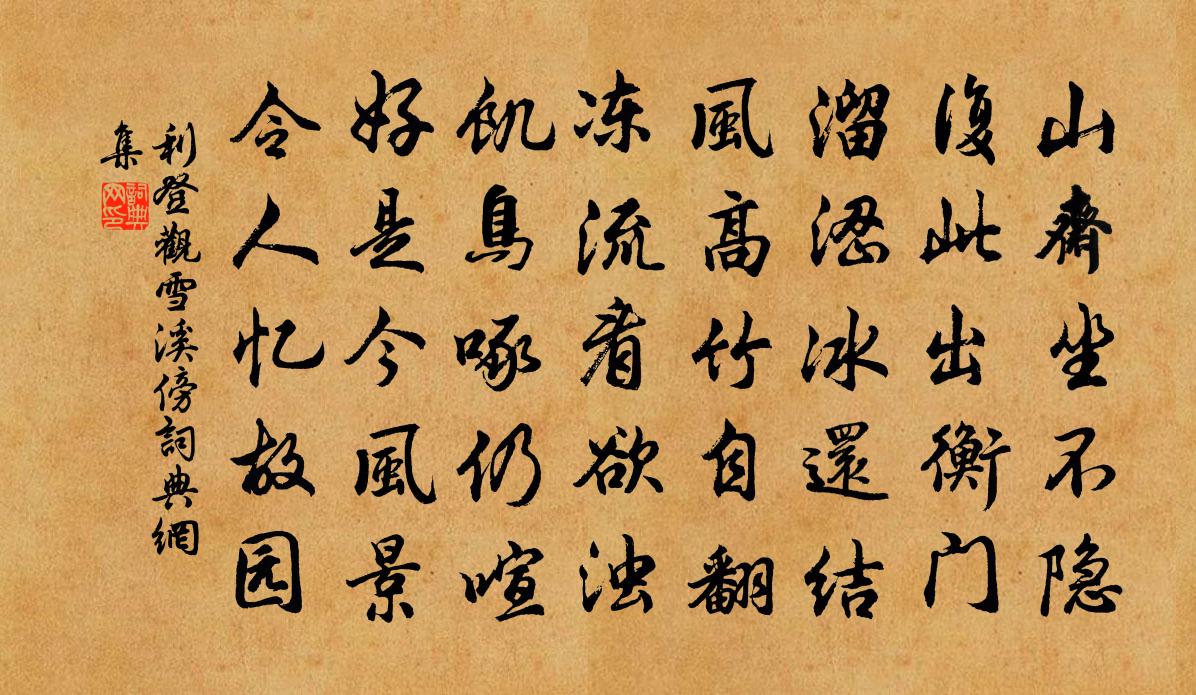 山齋坐不隐
復此出衡门
溜涩冰還结
風高竹自翻
冻流看欲浊
飢鳥啄仍喧
好是今風景
令人忆故园
利登觀雪溪傍詞典網
集
詞典
网印